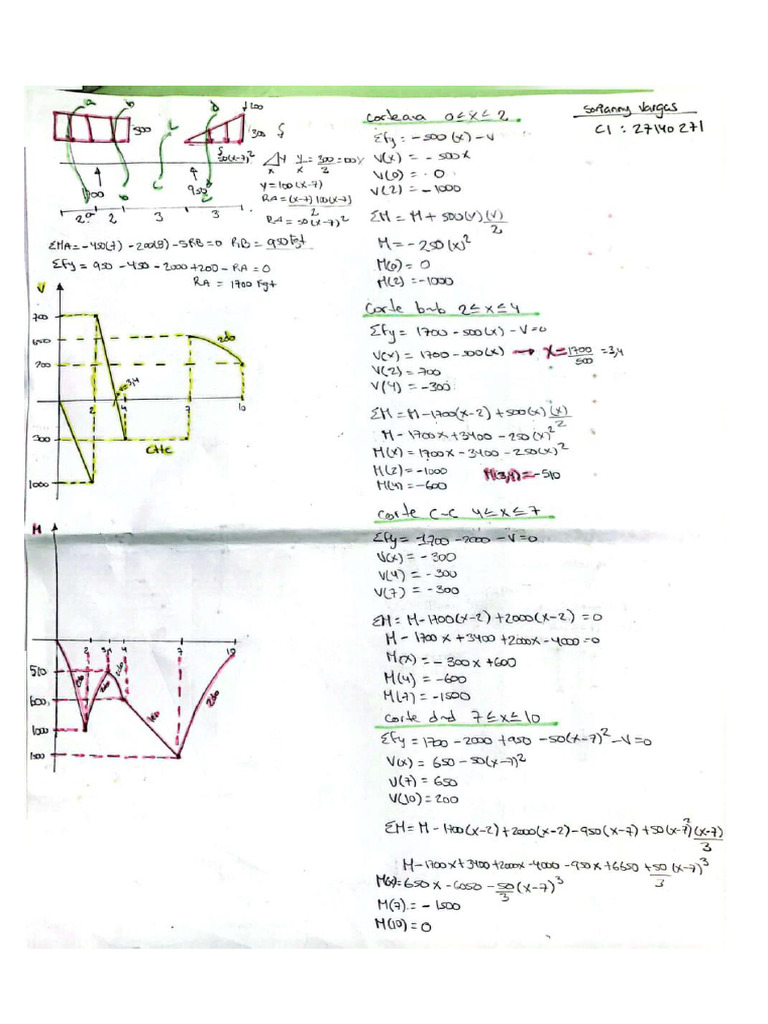 Sorianny Vargas
CI : 27140271
a b c D
↓200
500
300
50(x-7)²
y/x = 300/3 = 100x
y = 100(x-7)
RA = (x-7)100(x-7)/2
RA = 50(x-7)²
1700
950
2 2 3 3
ΣMA = -450(7) -200(8) -5RB = 0 RB = 950 Kgf
ΣFy = 950 -450 -2000+200 - RA = 0
RA = 1700 Kgf
V
700
200
x=3,4
2 4 7 10
300
Cte
1000
M
2 3,4 4 7 10
510
600
1000
1500
Corte a-a 0 ≤ x ≤ 2
Σfy = -500(x) - V
V(x) = -500x
V(0) = 0
V(2) = -1000
ΣM = M + 500(x)(x)/2
M = -250(x)²
M(0) = 0
M(2) = -1000
Corte b-b 2 ≤ x ≤ 4
Σfy = 1700 - 500(x) - V=0
V(x) = 1700 - 500(x) → x = 1700/500 = 3,4
V(2) = 700
V(4) = -300
ΣM = M - 1700(x-2) + 500(x)(x)/2
M - 1700x + 3400 - 250(x)²
M(x) = 1700x - 3400 - 250(x)²
M(2) = -1000 M(3,4) = -510
M(4) = -600
Corte c-c 4 ≤ x ≤ 7
Σfy = 1700 - 2000 - V=0
V(x) = -300
V(4) = -300
V(7) = -300
ΣM = M - 1700(x-2) + 2000(x-2) = 0
M - 1700x + 3400 + 2000x - 4000 = 0
M(x) = -300x + 600
M(4) = -600
M(7) = -1500
Corte d-d 7 ≤ x ≤ 10
Σfy = 1700 - 2000 + 950 - 50(x-7)² - V=0
V(x) = 650 - 50(x-7)²
V(7) = 650
V(10) = 200
ΣM = M - 1700(x-2) + 2000(x-2) - 950(x-7) + 50(x-7)² (x-7)/3
M - 1700x + 3400 + 2000x - 4000 - 950x + 6650 + 50/3 (x-7)³
M(x) = 650x - 6050 - 50/3 (x-7)³
M(7) = -1500
M(10) = 0